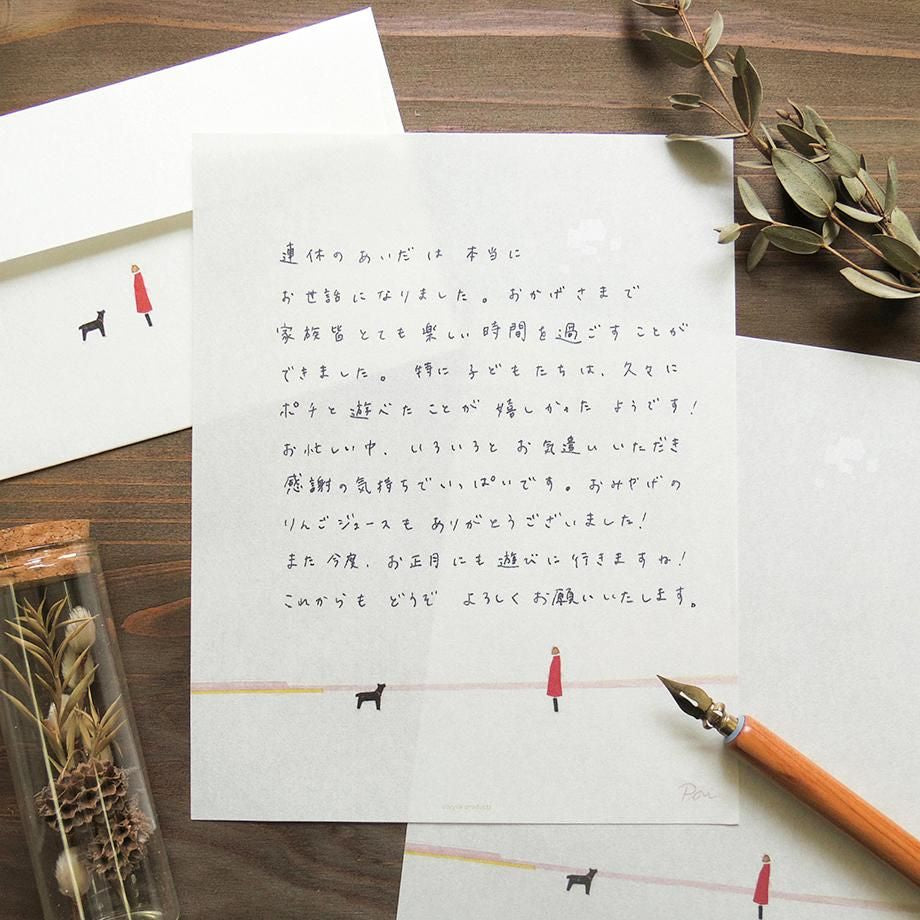 連休のあいだは 本当に
お世話になりました。おかげさまで
家族皆とても楽しい時間を過ごすことが
できました。特に子どもたちは、久々に
ポチと遊べたことが嬉しかったようです!
お忙しい中、いろいろとお気遣いいただき
感謝の気持ちでいっぱいです。おみやげの
りんごジュースもありがとうございました!
また今度、お正月にも遊びに行きますね!
これからも どうぞ よろしくお願いいたします。